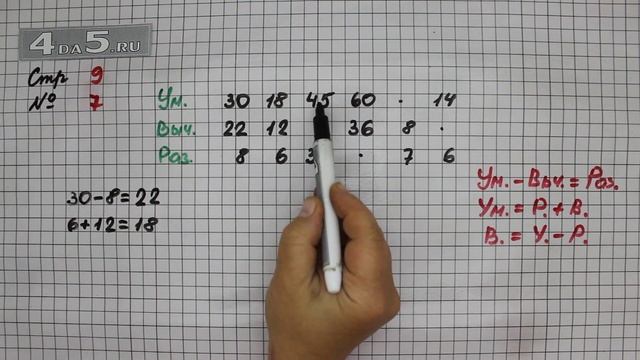 4DA5.RU
Стр 9
№ 7
Ум. 30 18 45 60 · 14
Выч. 22 12 36 8 ·
Раз. 8 6 3 · 7 6
30-8=22
6+12=18
Ум.-Выч.=Раз.
Ум.=Р.+В.
В.=У.-Р.